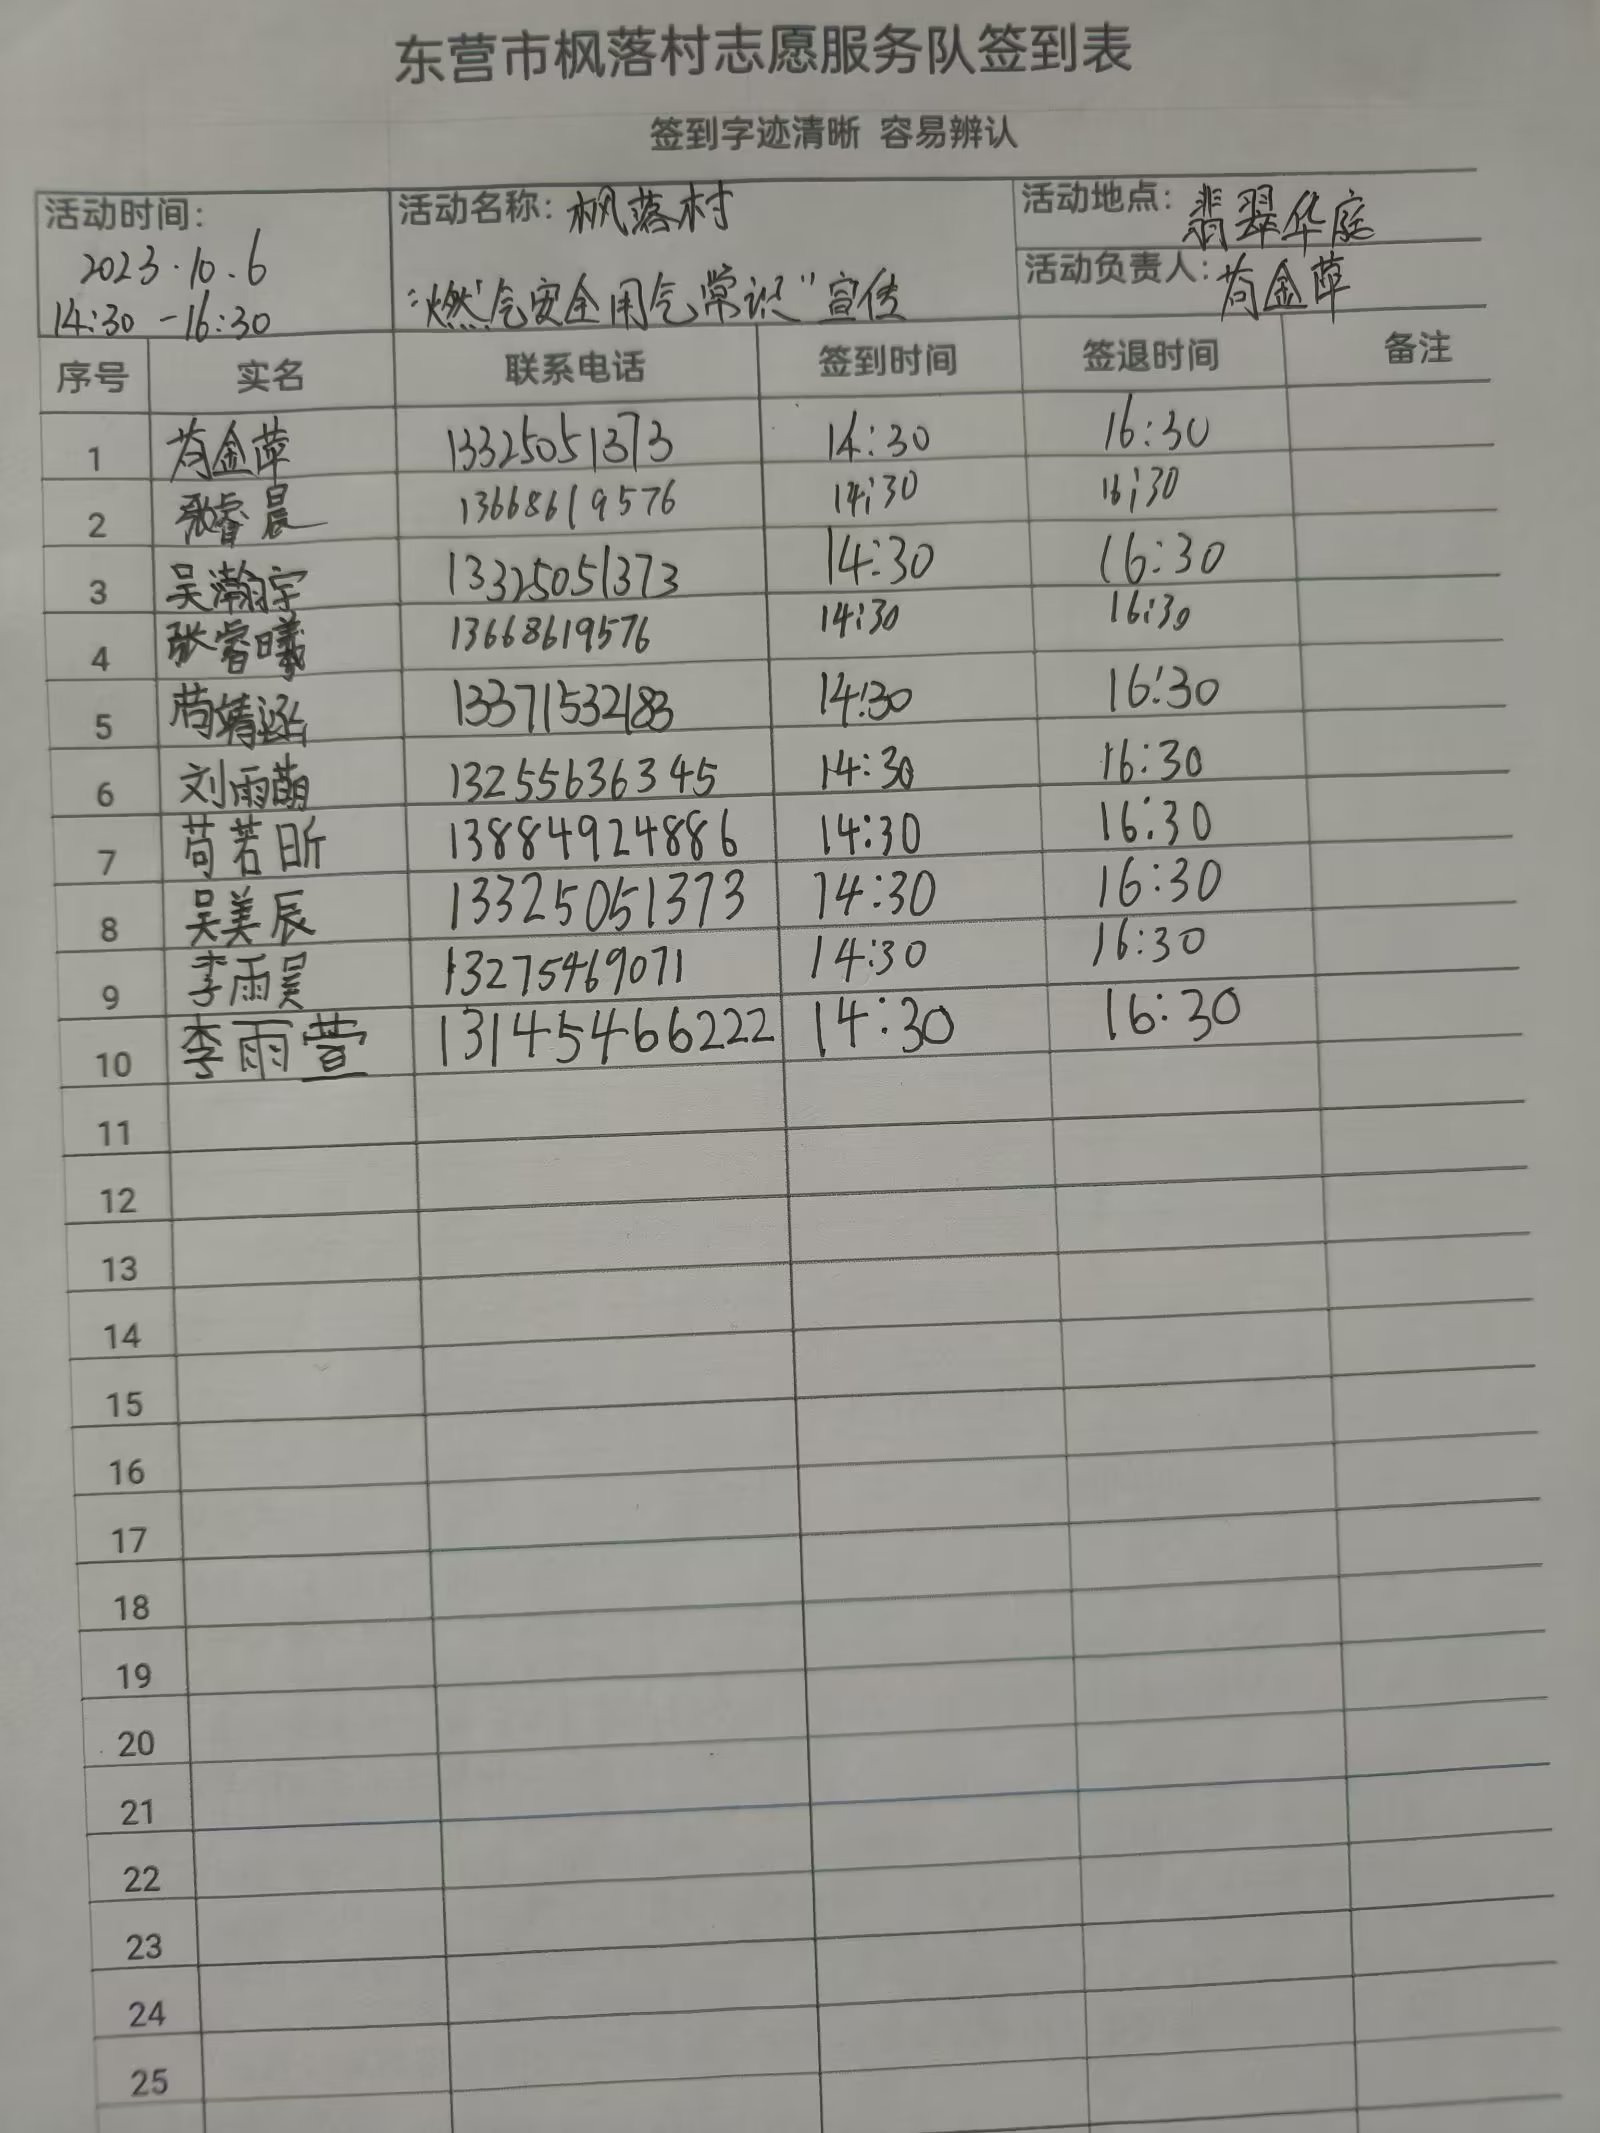 东营市枫落村志愿服务队签到表
签到字迹清晰 容易辨认
活动时间: 2023.10.6 14:30-16:30
活动名称: 枫落村 "燃气安全用气常识"宣传
活动地点: 翡翠华庭
活动负责人: 苟金萍
序号 实名 联系电话 签到时间 签退时间 备注
1 苟金萍 13325051373 14:30 16:30
2 张睿晨 13668619576 14:30 16:30
3 吴瀚宇 13325051373 14:30 16:30
4 张睿曦 13668619576 14:30 16:30
5 苟靖涵 13371532183 14:30 16:30
6 刘雨萌 13255636345 14:30 16:30
7 苟若昕 13884924886 14:30 16:30
8 吴美辰 13325051373 14:30 16:30
9 李雨昊 13275469071 14:30 16:30
10 李雨萱 13145466222 14:30 16:30
11
12
13
14
15
16
17
18
19
20
21
22
23
24
25